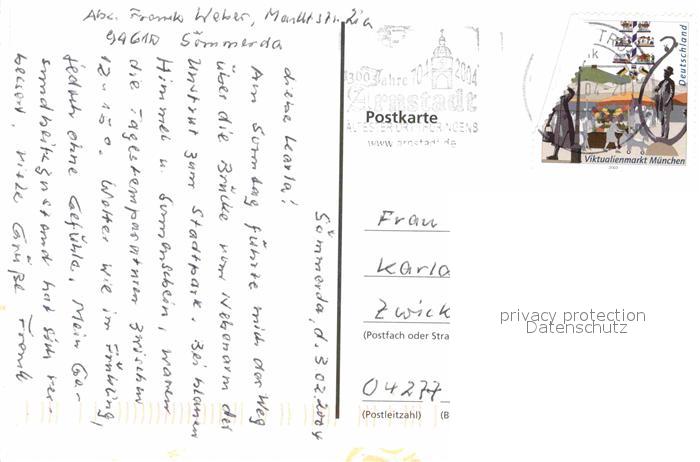 Abs. Frank Weber, Marktstr. 21a
99610 Sömmerda
Sömmerda, d. 3.02.2004
Liebe Karla!
Am Sonntag führte mich der Weg
über die Brücke vom Nebenarm der
Unstrut zum Stadtpark. Bei blauen
Himmel u. Sonnenschein, waren
die Tagestemperaturen zwischen
12 - 15°. Wetter wie im Frühling,
jedoch ohne Gefühle. Mein Ge-
sundheitszustand hat sich ver-
bessert, viele Grüße Frank
1300 Jahre 704 2004
Arnstadt
ÄLTESTER ORT THÜRINGENS
www.arnstadt.de
Postkarte
Deutschland
Viktualienmarkt München
Frau
Karla
Zwick
(Postfach oder Stra
04277
(Postleitzahl) (B
privacy protection
Datenschutz